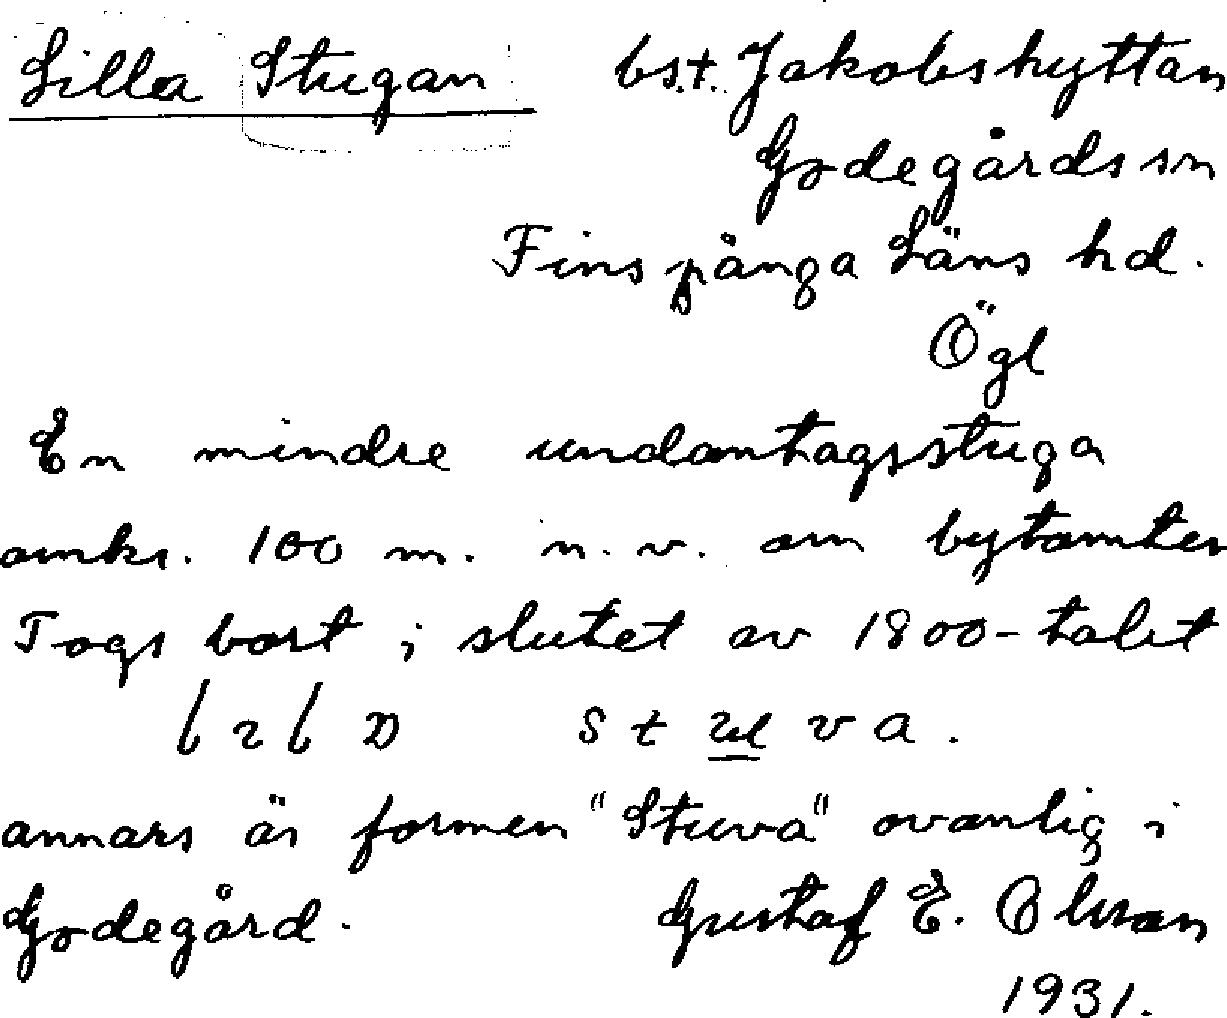 Lilla Stugan bst. Jakobshyttan
Godegårds sn
Finspånga Läns hd.
Ögl
En mindre undantagsstuga
omkr. 100 m. n. v. om bytomten
Togs bort i slutet av 1800-talet
stuva.
annars är formen "Stuva" ovanlig i
Godegård. Gustaf E. Olsson
1931.